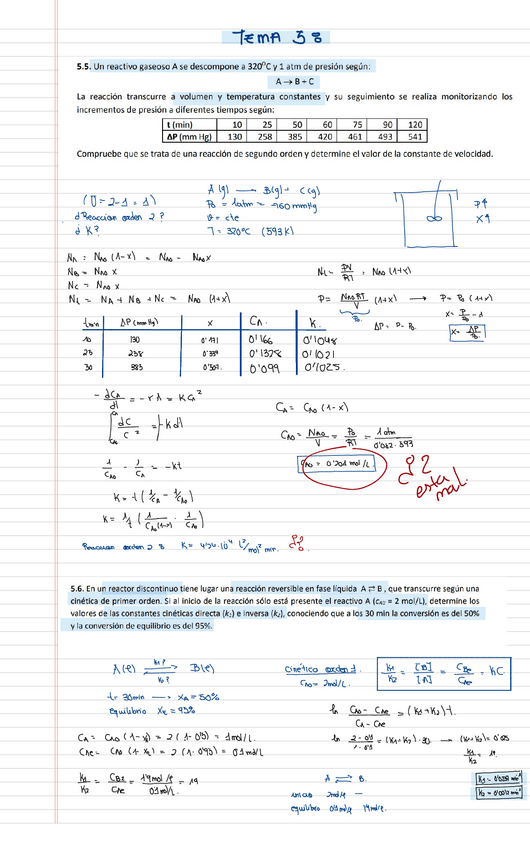 TEMA 5 8
5.5. Un reactivo gaseoso A se descompone a 320ºC y 1 atm de presión según:
A → B + C
La reacción transcurre a volumen y temperatura constantes y su seguimiento se realiza monitorizando los
incrementos de presión a diferentes tiempos según:
t (min) 10 25 50 60 75 90 120
ΔP (mm Hg) 130 258 385 420 461 493 541
Compruebe que se trata de una reacción de segundo orden y determine el valor de la constante de velocidad.
A (g) → B(g) + C(g)
(℧ = 2-1 = 1)
P₀ = 1atm = 760 mmHg
¿Reaccion orden 2?
V = cte
¿K?
T = 320ºC (593K)
P↑
X↑
NA = NA0 (1-x) = NA0 - NA0x
NB = NA0 x
NC = NA0 x
Nt = NA + NB + NC = NA0 (1+x)
Nt = PV/RT = NA0 (1+x)
P = NA0RT/V (1+x) → P = P₀ (1+x)
P₀
ΔP = P - P₀
x = P/P₀ - 1
x = ΔP/P₀
t(min) ΔP (mmHg) x CA K
10 130 0'171 0'166 0'1048
25 258 0'339 0'1328 0'1021
50 385 0'507 0'099 0'1025
- dCA/dt = - rA = KCA²
CA = CA0 (1-x)
CA0 = NA0/V = P₀/RT = 1atm/0'082·593
1/CA0 - 1/CA = -Kt
CA0 = 0'201 mol/L
¿? esta mal.
K = 1/t (1/CA - 1/CA0)
K = 1/t (1/CA0(1-x) - 1/CA0)
Reaccion orden 2
5.6. En un reactor discontinuo tiene lugar una reacción reversible en fase líquida A ⇌ B, que transcurre según una
cinética de primer orden. Si al inicio de la reacción sólo está presente el reactivo A (CA0 = 2 mol/L), determine los
valores de las constantes cinéticas directa (k₁) e inversa (k₂), conociendo que a los 30 min la conversión es del 50%
y la conversión de equilibrio es del 95%.
A(l) ⇌ B(l)
K₁?
K₂?
Cinética orden 1.
CA0 = 2mol/L.
K₁/K₂ = [B]/[A] = CBe/CAe = KC.
t = 30min → XA = 50%
equilibrio Xe = 95%
ln CA0 - CAe/CA - CAe = (K₁+K₂)t.
CA = CA0 (1-x) = 2 (1-0'5) = 1mol/L.
CAe = CA0 (1-Xe) = 2 (1-0'95) = 0'1mol/L
ln 2-0'1/1-0'1 = (K₁+K₂)·30 → (K₁+K₂) = 0'025
K₁/K₂ = 19.
K₁/K₂ = CBe/CAe = 1'9mol/l/0'1mol/L = 19
A ⇌ B.
inicio 2mol/l —
equilibrio 0'1mol/l 1'9mol/l.